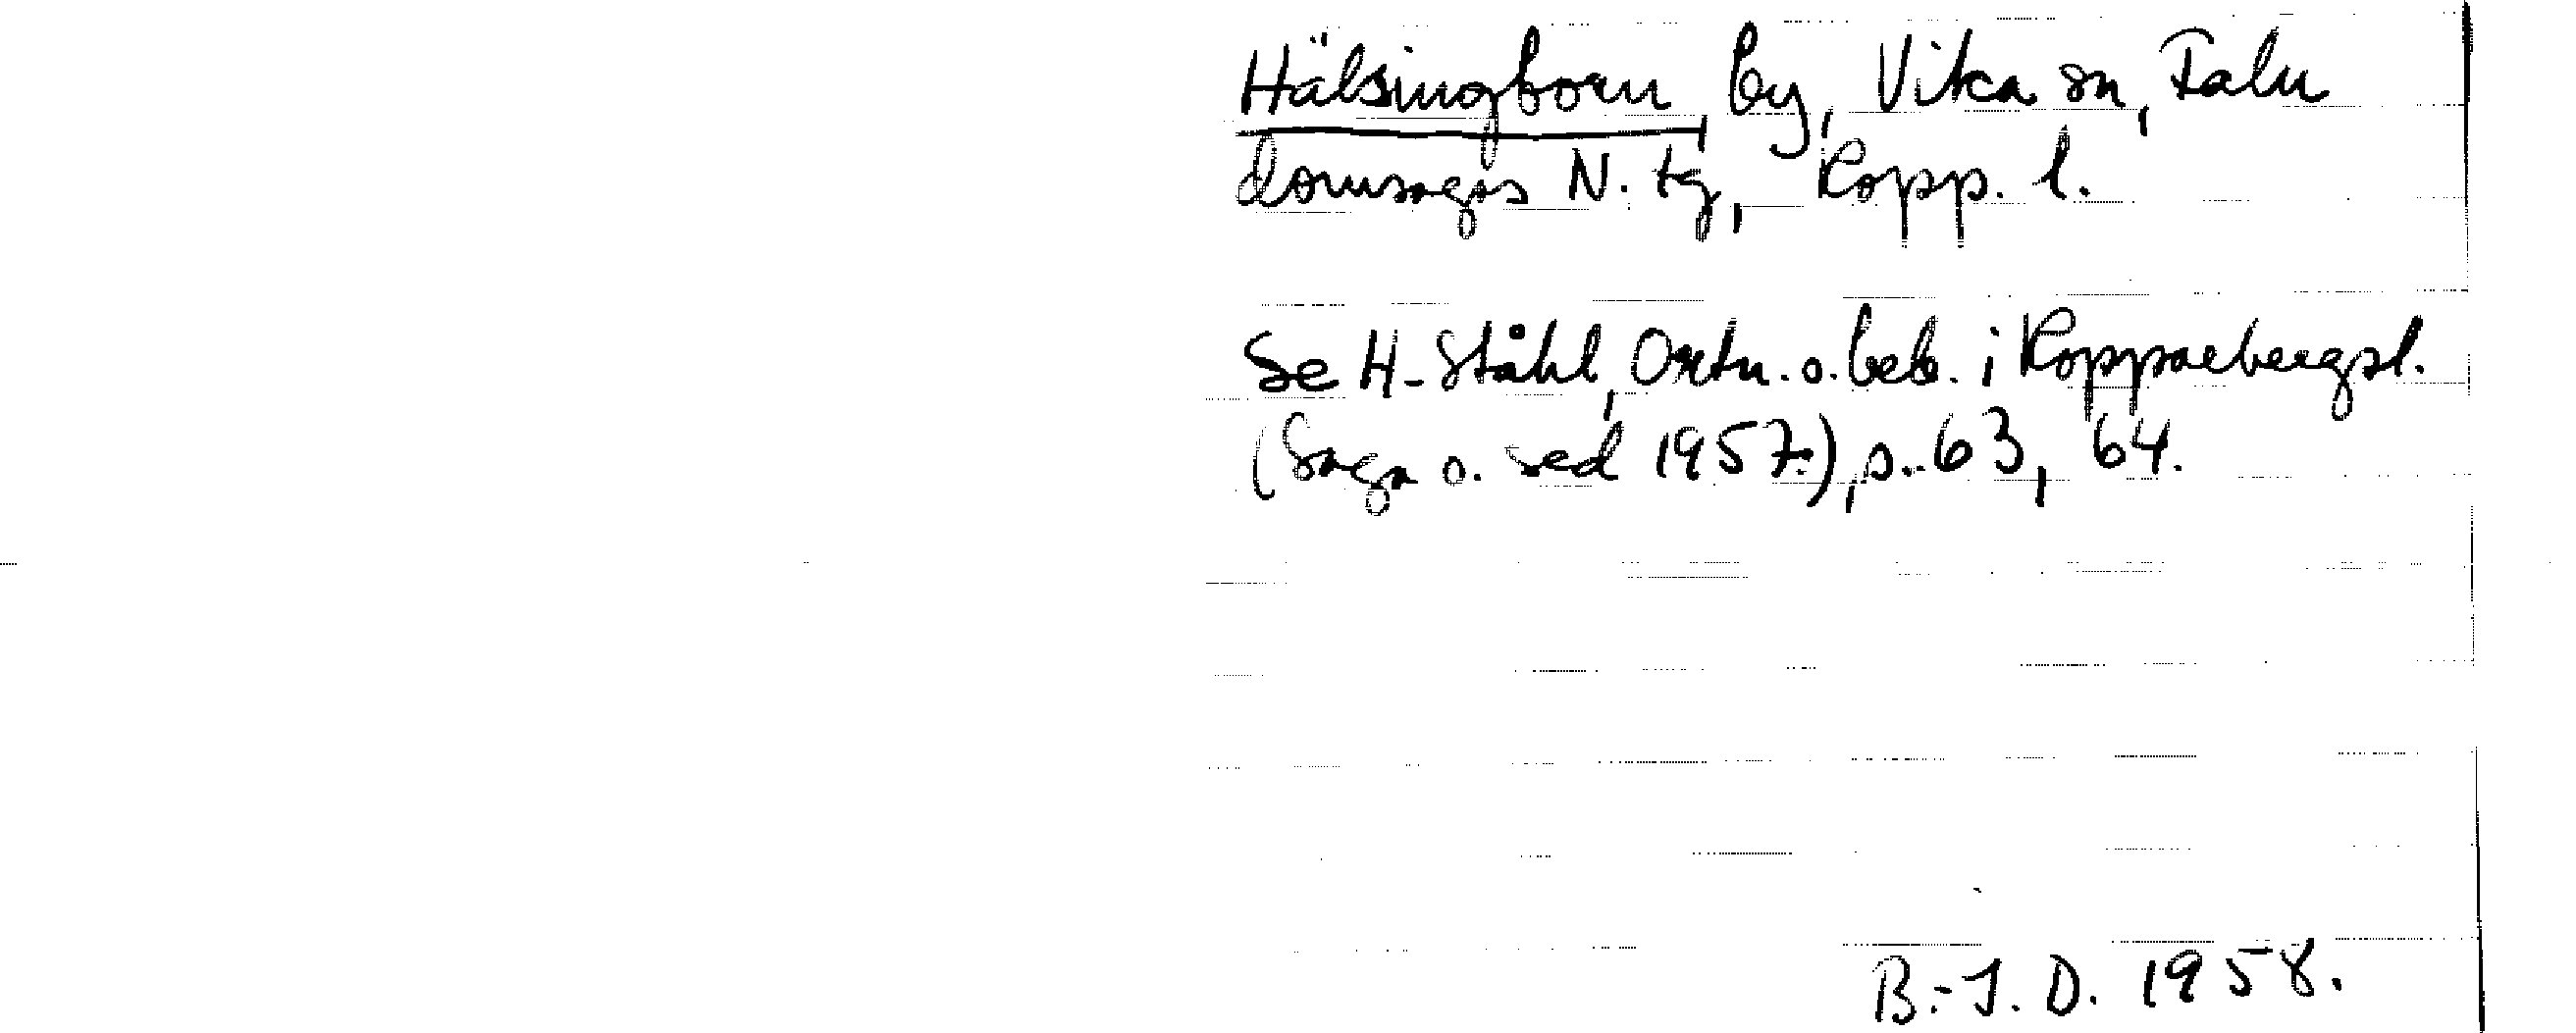 Hälsingborn, by, Vika sn, Falu
domsagas N. tg, Kopp. l.
Se H. Ståhl, Ortn. o. beb. i Kopparbergsl.
(Saga o. sed 1957), s. 63, 64.
B.-J. D. 1958.